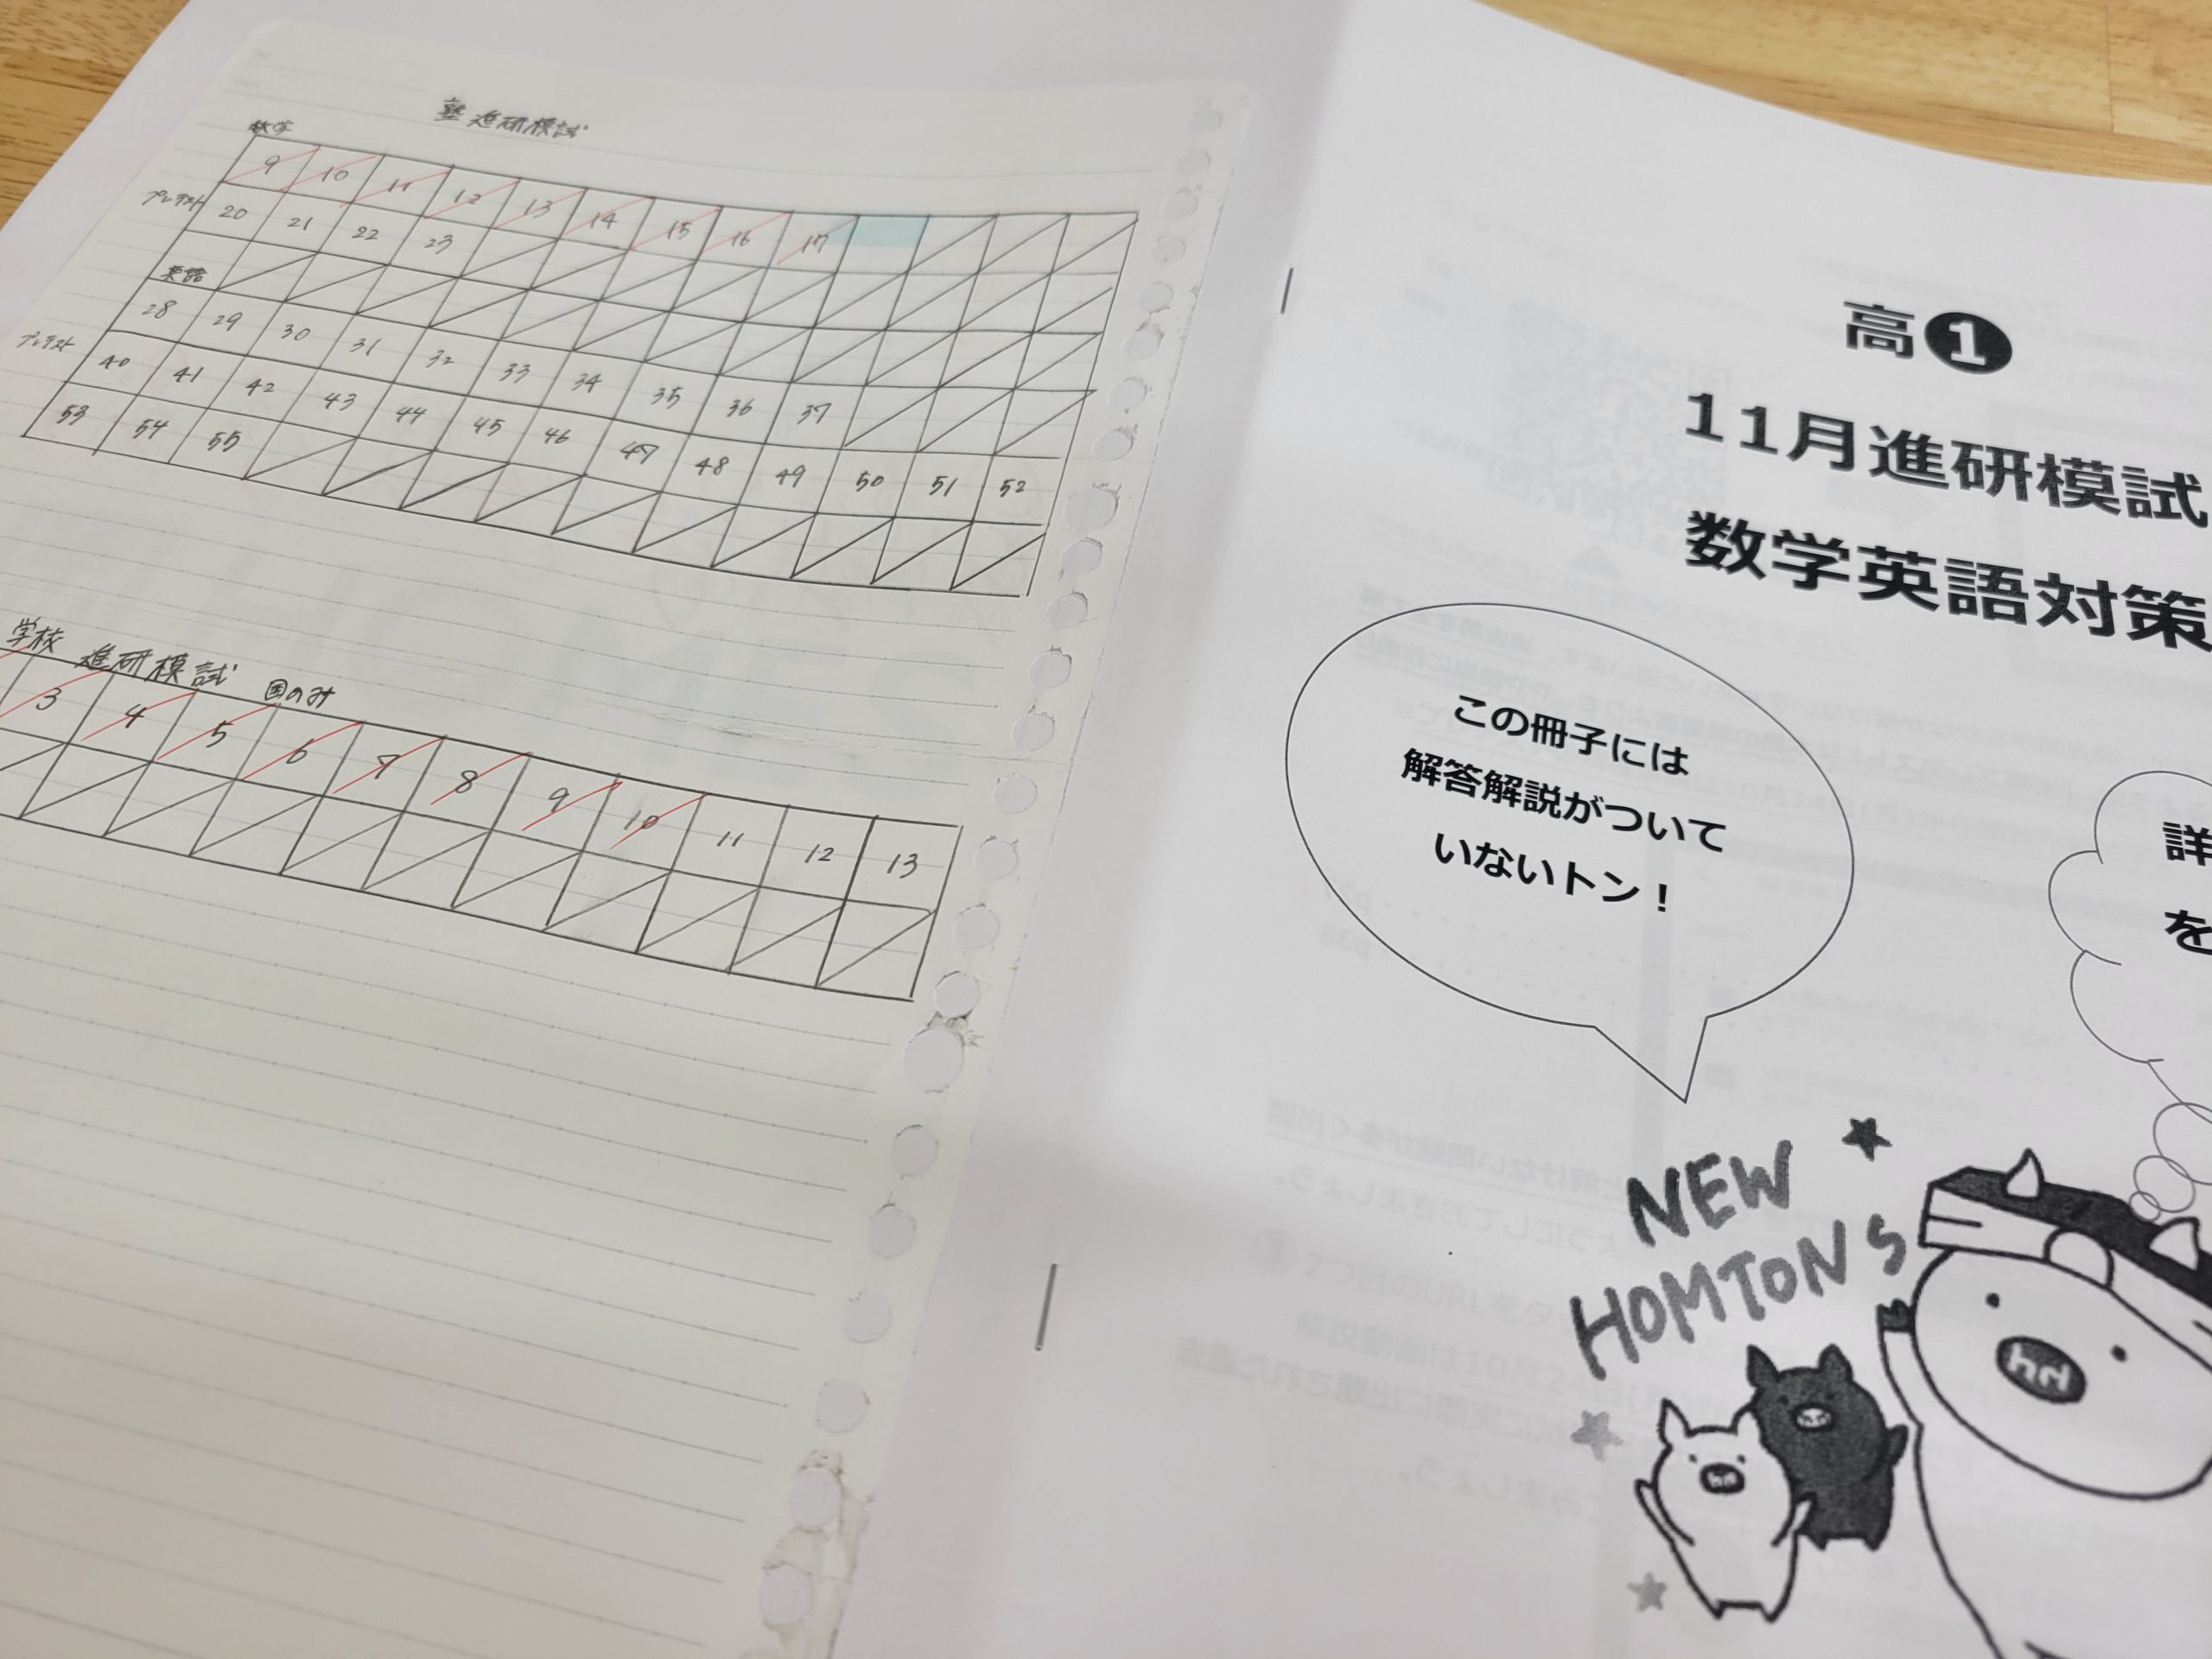 塾 進研模試
数学
9 10 11 12 13 14 15 16 17
プレテスト
20 21 22 23
英語
28 29 30 31 32 33 34 35 36 37
プレテスト
40 41 42 43 44 45 46 47 48 49 50 51 52
53 54 55
学校 進研模試 国のみ
3 4 5 6 7 8 9 10 11 12 13
高1
11月進研模試
数学英語対策
この冊子には
解答解説がついて
いないトン！
詳
を
NEW
HOMTONS